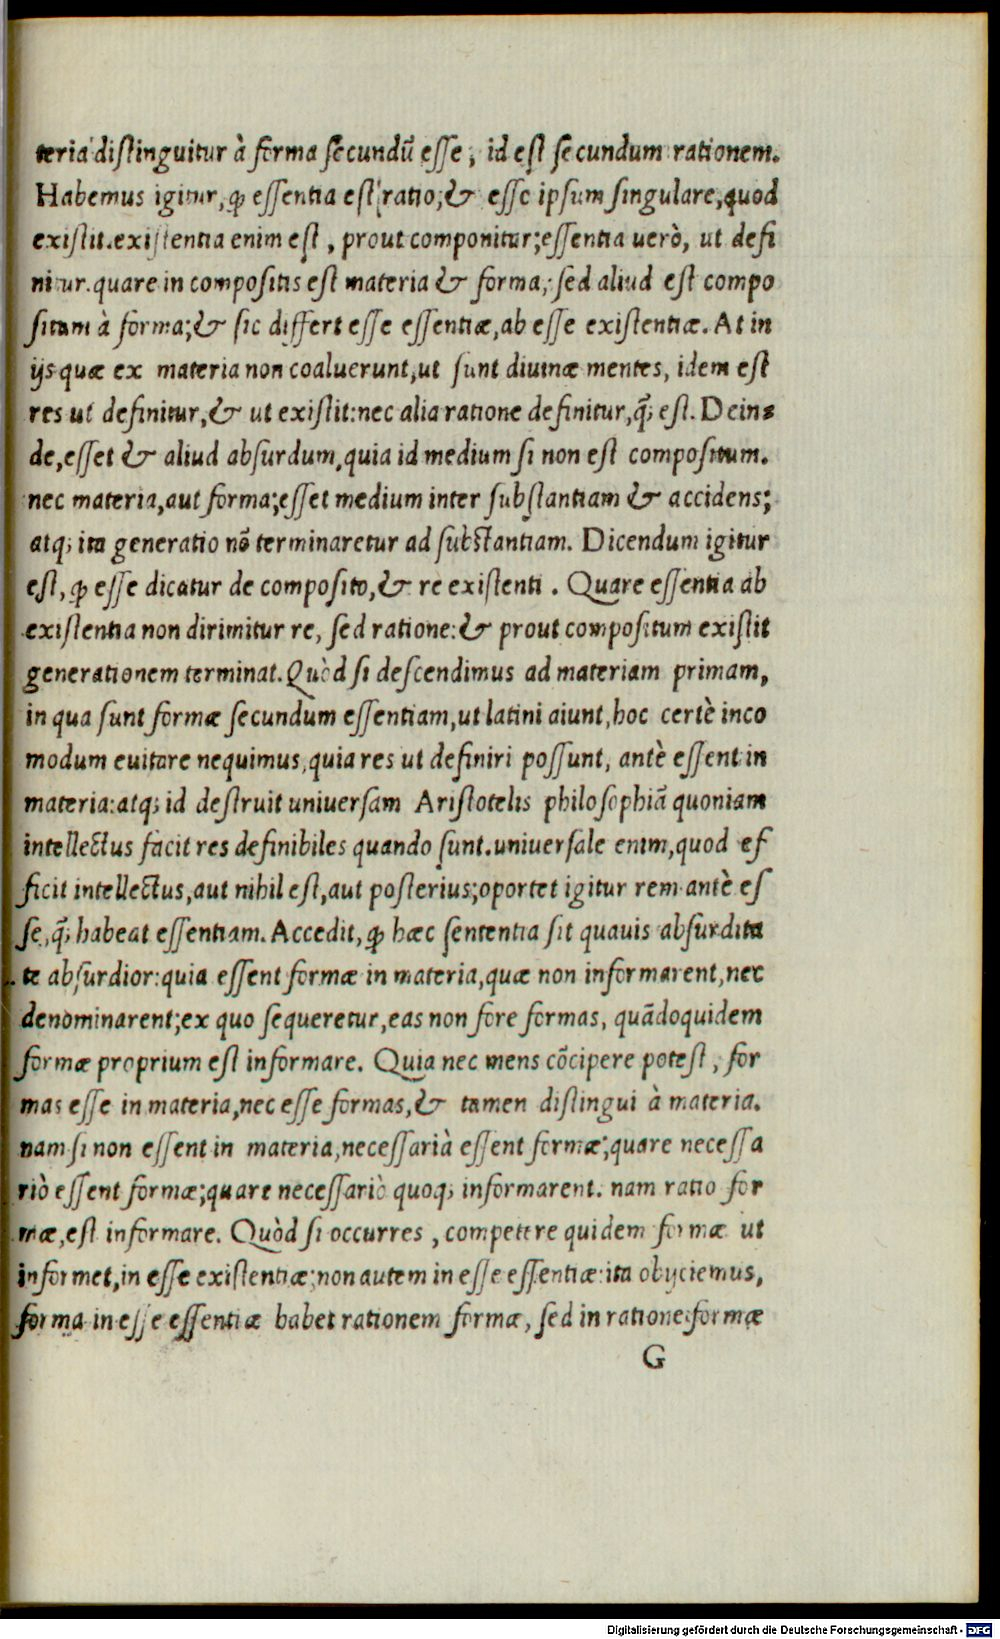 teria distinguitur à forma secundũ esse, id est secundum rationem.
Habemus igitur, ꝙ essentia est ratio; & esse ipsum singulare, quod
existit. existentia enim est, prout componitur; essentia uerò, ut defi
nitur. quare in compositis est materia & forma; sed aliud est compo
situm à forma; & sic differt esse essentiæ, ab esse existentiæ. At in
ijs quæ ex materia non coaluerunt, ut sunt diuinæ mentes, idem est
res ut definitur, & ut existit: nec alia ratione definitur, q̃; est. Dein-
de, esset & aliud absurdum, quia id medium si non est compositum.
nec materia, aut forma; esset medium inter substantiam & accidens;
atq; ita generatio nõ terminaretur ad substantiam. Dicendum igitur
est, ꝙ esse dicatur de composito, & re existenti. Quare essentia ab
existentia non dirimitur re, sed ratione: & prout compositum existit
generationem terminat. Quòd si descendimus ad materiam primam,
in qua sunt formæ secundum essentiam, ut latini aiunt, hoc certè inco
modum euitare nequimus, quia res ut definiri possunt, antè essent in
materia: atq; id destruit uniuersam Aristotelis philosophiã quoniam
intellectus facit res definibiles quando sunt. uniuersale enim, quod ef
ficit intellectus, aut nihil est, aut posterius; oportet igitur rem antè es
se, q̃; habeat essentiam. Accedit, ꝙ hæc sententia sit quauis absurdita
te absurdior: quia essent formæ in materia, quæ non informarent, nec
denominarent; ex quo sequeretur, eas non fore formas, quãdoquidem
formæ proprium est informare. Quia nec mens cõcipere potest, for
mas esse in materia, nec esse formas, & tamen distingui à materia.
nam si non essent in materia, necessarià essent formæ; quare necessa
riò essent formæ; quare necessariò quoq; informarent. nam ratio for
mæ, est informare. Quòd si occurres, competere quidem formæ ut
informet, in esse existentiæ; non autem in esse essentiæ: ita obijciemus,
forma in esse essentiæ habet rationem formæ, sed in ratione formæ
G
Digitalisierung gefördert durch die Deutsche Forschungsgemeinschaft - DFG